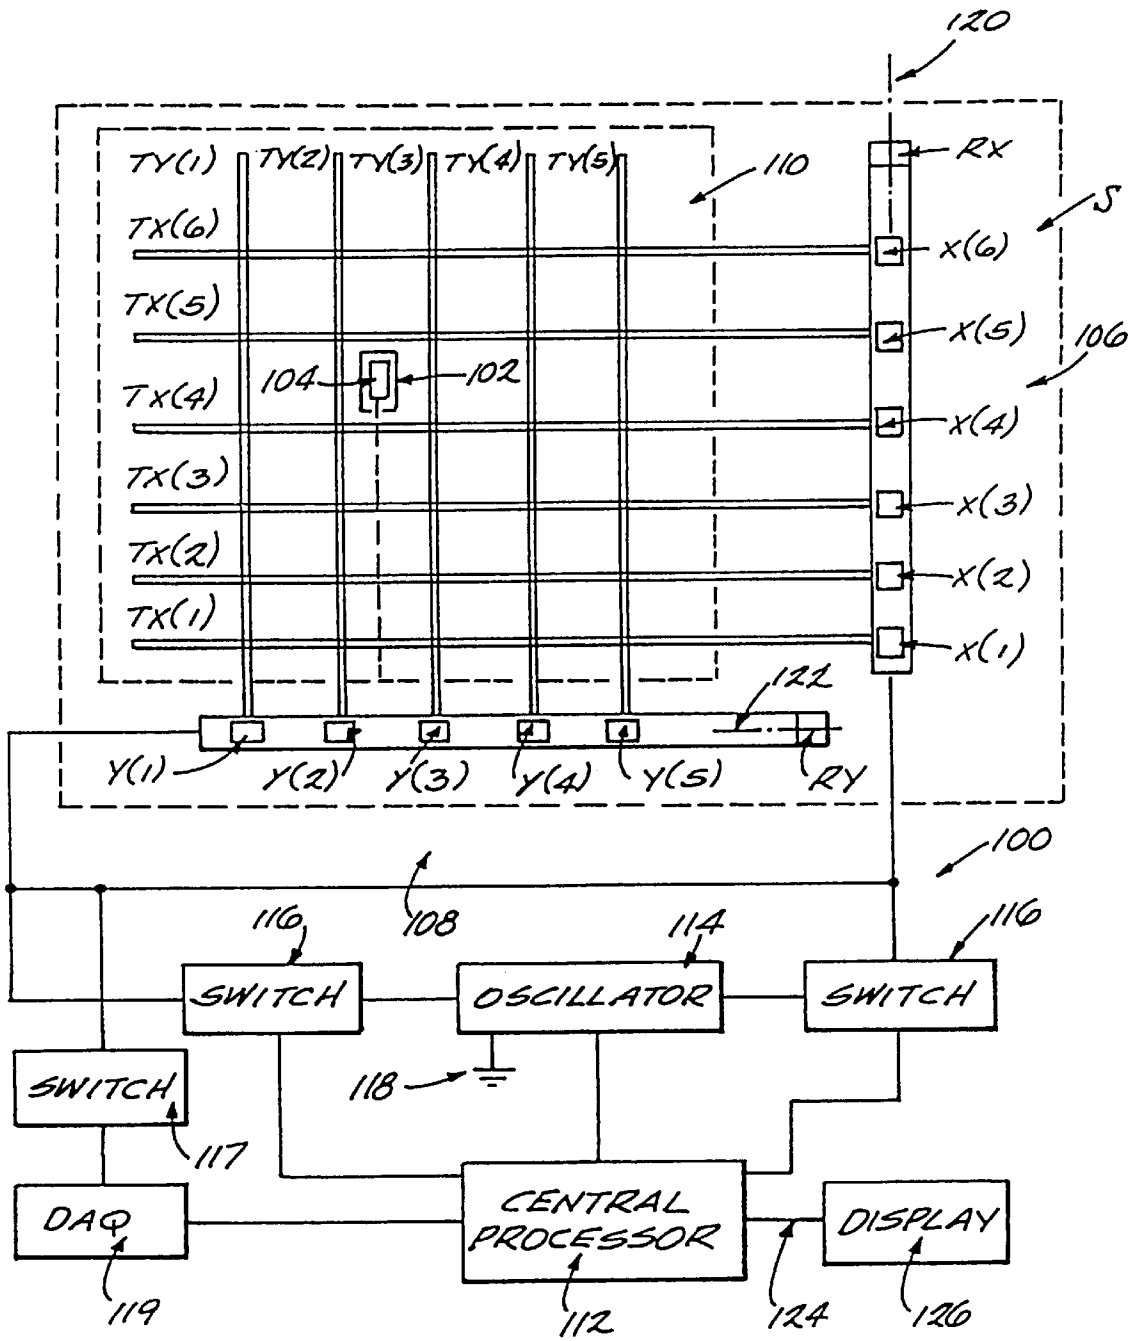 120
TY(1) TY(2) TY(3) TY(4) TY(5)
110
RX
S
TX(6)
X(6)
TX(5)
X(5)
106
104
102
TX(4)
X(4)
TX(3)
X(3)
TX(2)
X(2)
TX(1)
X(1)
122
Y(1) Y(2) Y(3) Y(4) Y(5) RY
100
108
116
114
116
SWITCH
OSCILLATOR
SWITCH
118
SWITCH
117
CENTRAL
PROCESSOR
DAQ
DISPLAY
119
112
124
126